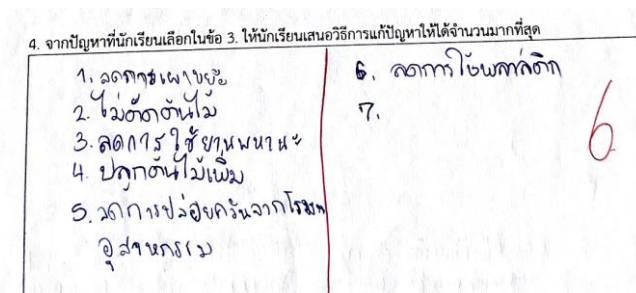 4. จากปัญหาที่นักเรียนเลือกในข้อ 3. ให้นักเรียนเสนอวิธีการแก้ปัญหาให้ได้จำนวนมากที่สุด
1. ลดการเผาขยะ
2. ไม่ตัดต้นไม้
3. ลดการใช้ยานพาหนะ
4. ปลูกต้นไม้เพิ่ม
5. ลดการปล่อยควันจากโรงงาน
อุสาหกรรม
6. ลดการใช้พลาสติก
7.
6